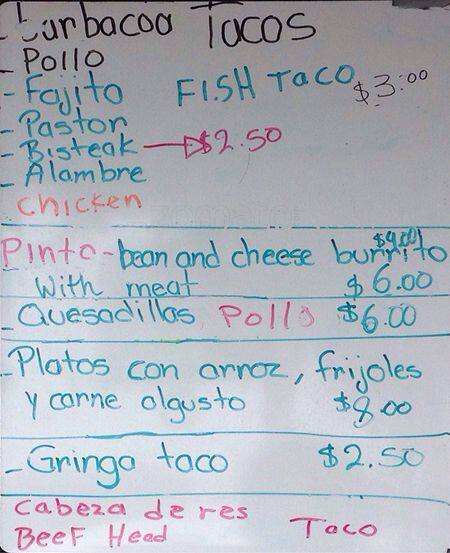 Barbacoa Tacos
- Pollo
- Fajita FISH Taco $3:00
- Pastor
- Bisteak → $2.50
- Alambre
Chicken
Pinto-bean and cheese burrito $4.00
With meat $6.00
- Quesadillas Pollo $6.00
- Platos con arroz, frijoles
y carne algusto $8.00
- Gringa taco $2.50
Cabeza de res
BEEF Head Taco